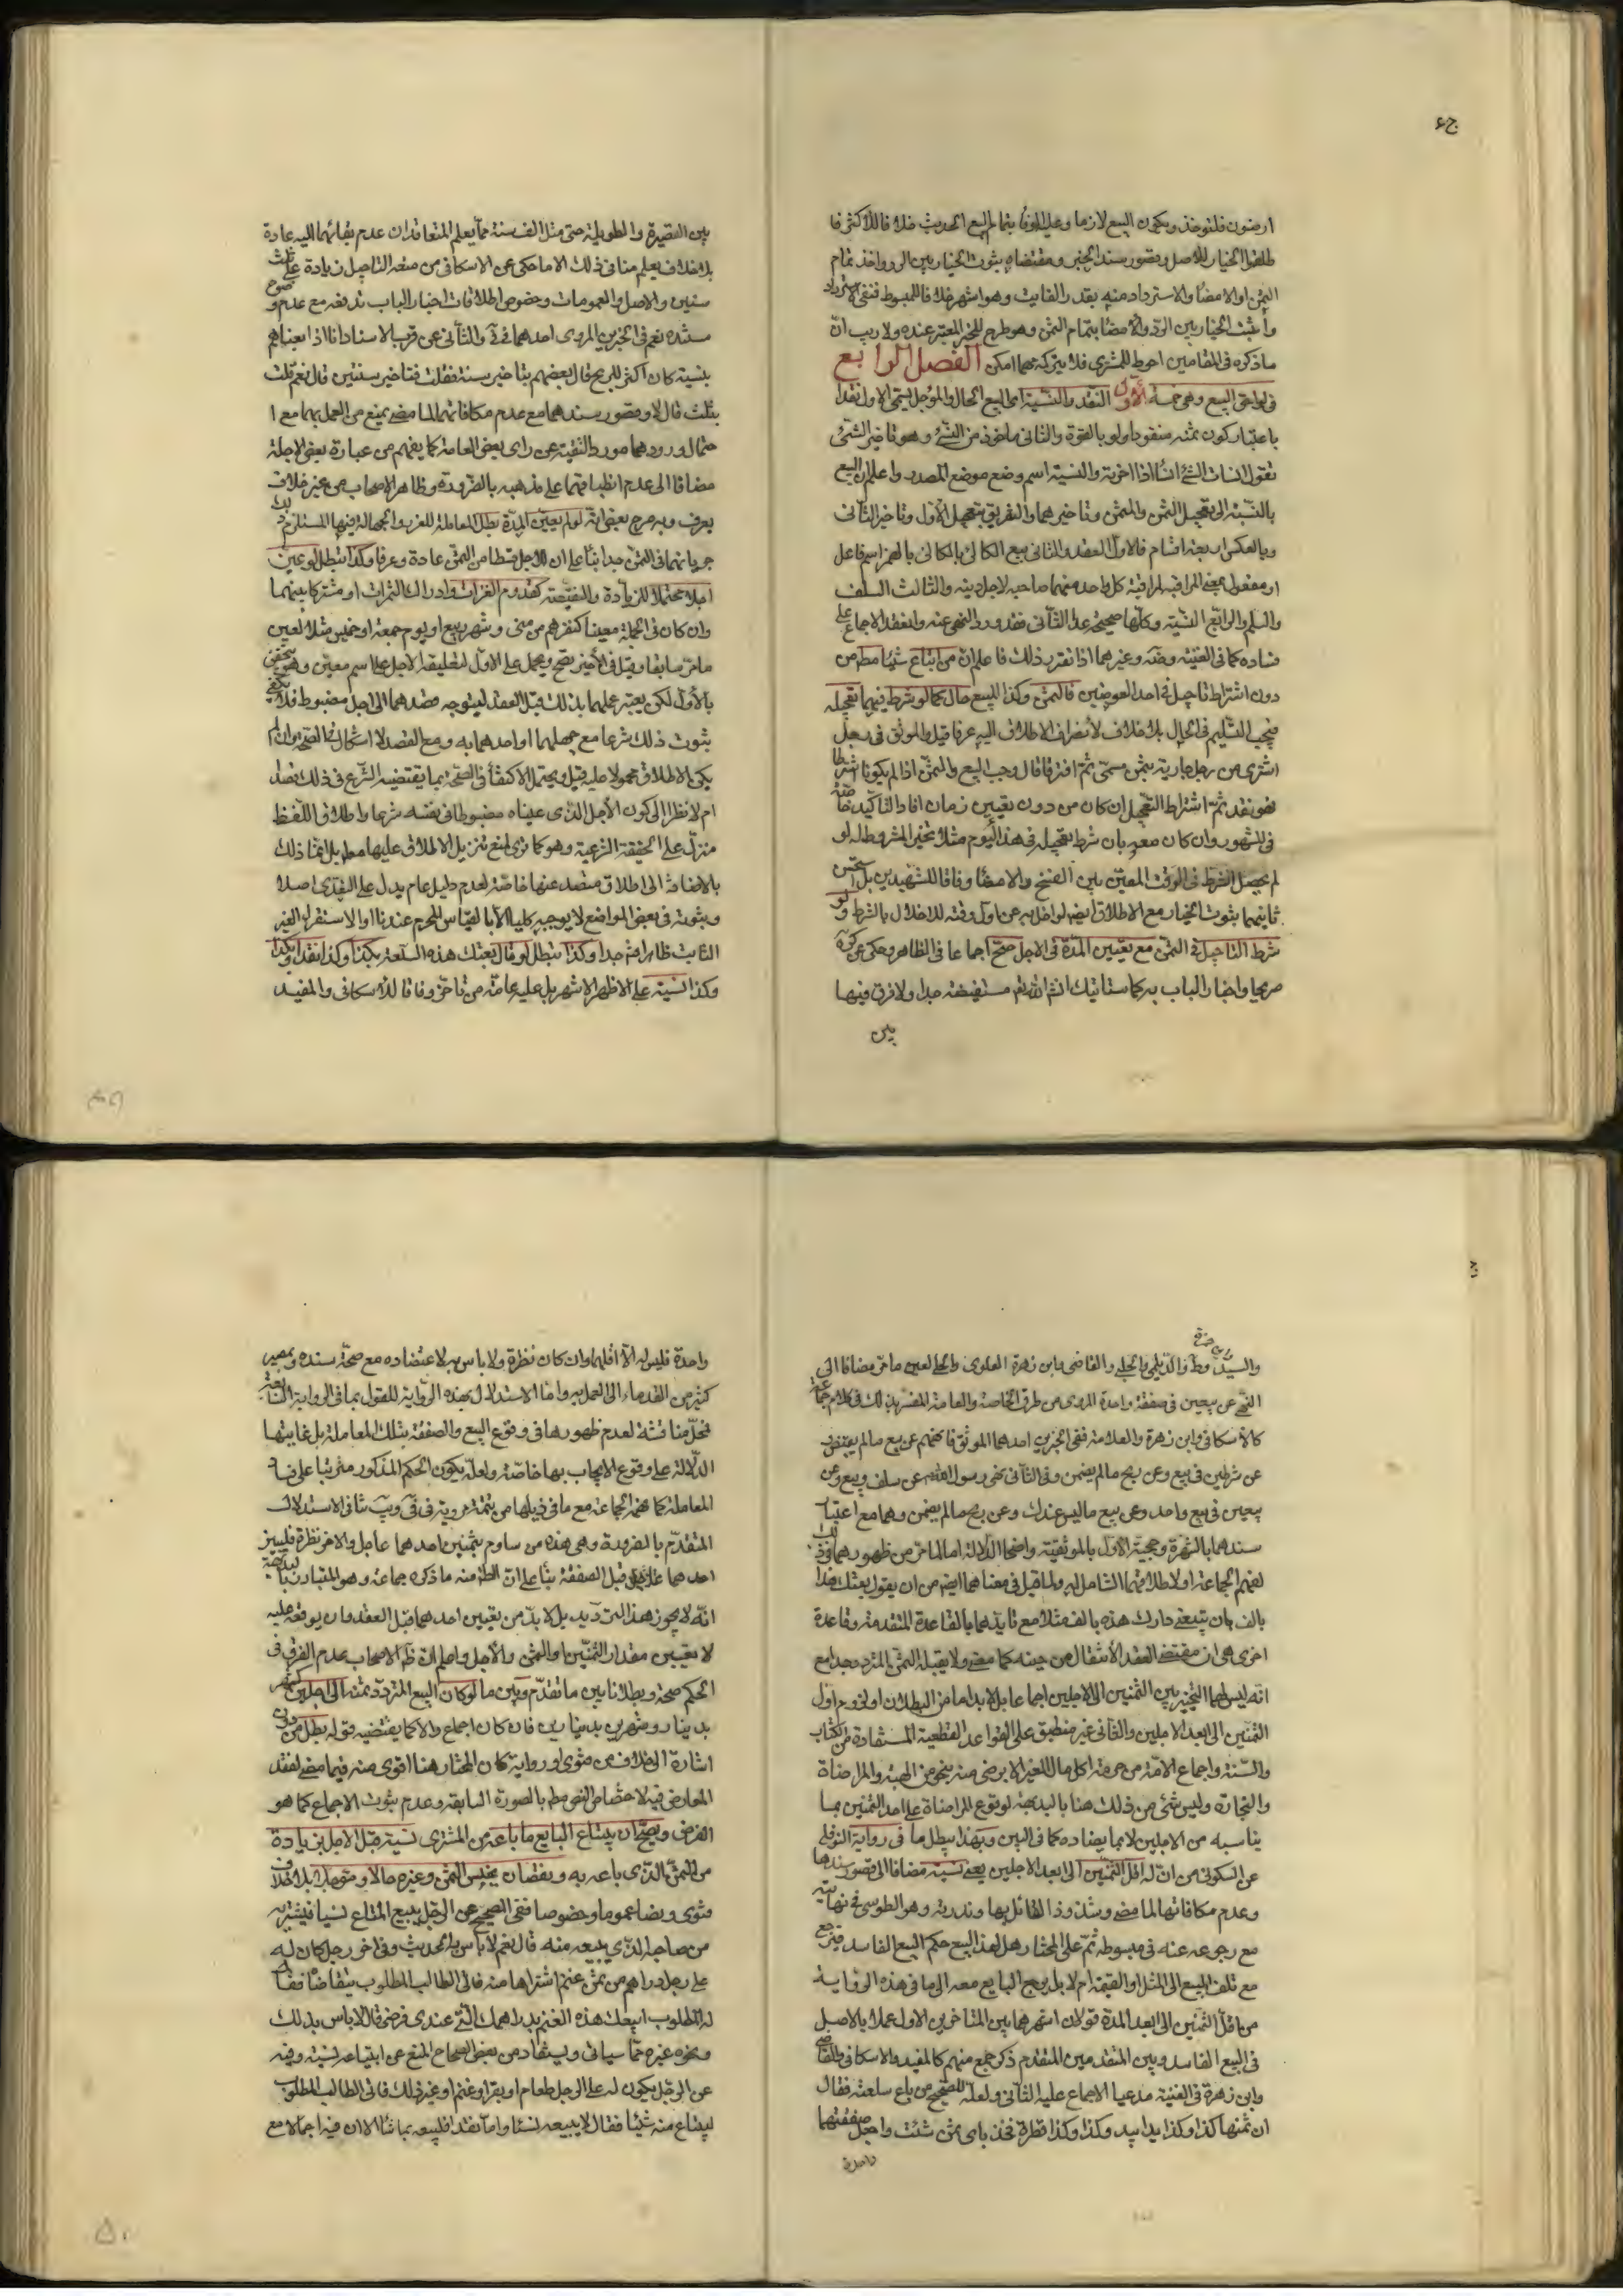 ارضون فلتوخذ ويكون البيع لازما وعليه الوفاء بتمام البيع الحديث خلافا للاكثر فا
طلقوا الخيار للاصل وقصور سند الخبر ومقتضاه ثبوت الخيار بين الرد واخذ تمام
الثمن او الامضاء والاسترداد منه بقدر الفايت وهو اشهر خلافا للمبسوط فنفى الاسترداد
واثبت الخيار بين الرد والامضاء بتمام الثمن وهو طرح للخبر المعتبر عنده ولا ريب ان
ما ذكره فى المقامين احوط للمشترى فلا يتركه مهما امكن الفصل الرابع
فى لواحق البيع وهى خمسة الأول النقد والنسية اى البيع الحال والمؤجل يسمى الاول نقدا
باعتبار كون ثمنه منقودا ولو بالقوة والثانى ماخوذ من النسئ وهو تاخير الشئ
تقول انسات الشئ انساء اذا اخرته والنسية اسم وضع موضع المصدر واعلم ان البيع
بالنسبة الى تعجيل الثمن والمثمن وتاخيرهما والتفريق بتعجيل الأول وتاخير الثانى
وبالعكس اربعة اقسام فالاول النقد والثانى بيع الكالئ بالكالئ بالهمز اسم فاعل
او مفعول بمعنى المراقبة لمراقبة كل واحد منهما صاحبه لاجل دينه والثالث السلف
والسلم والرابع النسية وكلها صحيحة عدا الثانى فقد ورد النهى عنه وانعقد الاجماع على
فساده كما فى الغنية وضه وغيرهما اذا تقرر ذلك فاعلم ان من ابتاع شيئا مطم من
دون اشتراط تاجيل فى احد العوضين فالثمن وكذا المبيع حال كما لو شرط فيهما تعجيله
فيجب التسليم فى الحال بلا خلاف لانصراف الاطلاق اليه عرفا قيل والموثق فى رجل
اشترى من رجل جارية بثمن مسمى ثم افترقا قال وجب البيع والثمن اذا لم يكونا شرطا
فهو نقد ثم اشتراط التعجيل ان كان من دون تعيين زمان افاد التاكيد خاصة
فى المشهور وان كان معه بان شرط تعجيله فى هذا اليوم مثلا تخير المشروط له لو
لم يحصل الشرط فى الوقت المعين بين الفسخ والامضاء وفاقا للشهيدين بل استحسن
ثانيهما ثبوت الخيار مع الاطلاق ايضا لو اخل به عن اول وقته للاخلال بالشرط ولو
شرط التاجيل فى الثمن مع تعيين المدة فى الاجل صح اجماعا فى الظاهر وحكى عن كره
صريحا واخبار الباب به كما ستاتيك انشاء الله تعم مستفيضة جدا ولا فرق فيها
بين
بين القصيرة والطويلة حتى مثل الف سنة مما يعلم المتعاقدان عدم بقائهما اليه عادة
بلا خلاف يعلم منا فى ذلك الا ما حكى عن الاسكافى من منعه التاجيل زيادة على ثلث
سنين والاصل والعمومات وخصوص اطلاقات اخبار الباب تدفعه مع عدم وضوح
مستنده نعم فى الخبرين المروى احدهما فى فى والثانى عن قرب الاسناد انا اذا بعناهم
بنسية كان اكثر للربح قال بعضهم بتاخير سنة فقلت فتاخير سنتين قال نعم قلت
بثلث قال لا وقصور سندهما مع عدم مكافاتهما لما مضى يمنع من العمل بهما مع ا
حتمال ورودهما مورد التقية عن راى بعض العامة كما يفهم من عبارة بعض الاجلة
مضافا الى عدم انطباقهما على مذهبه بالضرورة وظاهر الاصحاب من غير خلاف
يعرف وبه صرح بعض انه لو لم يعين المدة بطل المعاملة للغرر والجهالة فيها المستلزم لذلك
جريانهما فى الثمن جدا بناء على ان للاجل قسطا من الثمن عادة وعرفا وكذا تبطل لو عين
اجلا محتملا للزيادة والنقيصة كقدوم الغزات وادراك الثمرات او مشتركا بينهما
وان كان فى الجملة معينا كنفرهم من منى وشهر ربيع او يوم جمعة او خميس مثلا لعين
ما مر سابقا وقيل فى الأخير يصح ويحمل على الاول لتعليقه الاجل على اسم معين وهو يتحقق
بالأول لكن يعتبر علمهما بذلك قبل العقد ليتوجه قصدهما الى اجل مضبوط فلا يكفى
ثبوت ذلك شرعا مع جهلهما او احدهما به ومع القصد لا اشكال فى الصحة وان لم
يكن الاطلاق محمولا عليه قيل ويحتمل الاكتفاء فى الصحة بما يقتضيه الشرع فى ذلك قصدا
ام لا نظرا الى كون الأجل الذى عيناه مضبوطا فى نفسه شرعا واطلاق اللفظ
منزل على الحقيقة الشرعية وهو كما ترى لمنع تنزيل الاطلاق عليها مطم بل انما ذلك
بالاضافة الى اطلاق متصد عنها خاصة لعدم دليل عام يدل على التعدى اصلا
وثبوته فى بعض المواضع لا يوجبه كليا الا بالقياس المحرم عندنا او الاستقراء الغير
الثابت ظاهرا ثم جدا وكذا تبطل لو قال بعتك هذه السلعة بكذا وكذا نقدا وبكذا
وكذا نسية على الاظهر الاشهر بل عليه عامة من تاخر وفاقا للاسكافى والمفيد
والسيد وط والديلمى والحلبى والقاضى وابن زهرة العلوى والحلى لعين ما مر مضافا الى
النهى عن بيعين فى صفقة واحدة المروى من طرق الخاصة والعامة المفسر بذلك فى كلام جماعة
كالاسكافى وابن زهرة والعلامة ففى الخبرين احدهما الموثق فانههم عن بيع ما لم يقبض
عن شرطين فى بيع وعن ربح ما لم يضمن وفى الثانى نهى رسول الله ص عن سلف وبيع وعن
بيعين فى بيع واحد وعن بيع ما ليس عندك وعن ربح ما لم يضمن وهما مع اعتبار
سندهما بالشهرة وحجية الاول بالموثقية واضحا الدلالة اما لما مر من ظهورهما فى ذلك
لفهم الجماعة او لاطلاقهما الشامل له ولما قيل فى معناهما ايضا من ان يقول بعتك هذا
بالف بان تبيعنى دارك هذه بالف مثلا مع تايدهما بالقاعدة المتقدمة وقاعدة
اخرى هى ان مقتضى العقد الانتقال من حينه كما مضى ولا يقبله الثمن المتردد جدا مع
انه ليس لهما التخيير بين الثمنين الى الاجلين اجماعا بل لا بد اما من البطلان او لزوم اقل
الثمنين الى ابعد الاجلين والثانى غير منطبق على القواعد القطعية المستفادة من الكتاب
والسنة واجماع الامة من حرمة اكل مال الغير الا برضى منه ينجى من الهبة والمراضاة
والتجارة وليس شئ من ذلك هنا بالبديهة لوقوع المراضاة على احد الثمنين بما
يناسبه من الاجلين لا بما يضاده كما فى البين وبهذا يبطل ما فى رواية النوفلى
عن السكونى من ان له اقل الثمنين الى ابعد الاجلين يعنى نسية مضافا الى قصور سندها
وعدم مكافاتها لما مضى وشذوذ القائل بها وندرته وهو الطوسى فى نهايته
مع رجوعه عنه فى مبسوطه ثم على المختار هل لهذا البيع حكم البيع الفاسد فيرجع
مع تلف المبيع الى المثل او القيمة ام لا بل يرجع البايع معه الى ما فى هذه الرواية
من اقل الثمنين الى ابعد المدة قولان اشهرهما بين المتاخرين الاول عملا بالاصل
فى البيع الفاسد وبين المتقدمين المتقدم ذكر جمع منهم كالمفيد والاسكافى والقاضى
وابن زهرة فى الغنية مدعيا الاجماع عليه الثانى ولعله للصحيح من باع سلعة فقال
ان ثمنها كذا وكذا يدا بيد وكذا وكذا نظرة فخذ باى ثمن شئت واجعل صفقتهما
واحدة
واحدة فليس له الا اقلهما وان كان نظرة ولا باس به لاعتضاده مع صحة سنده بمصير
كثير من القدماء الى العمل به واما الاستدلال بهذه الرواية للقول بما فى الرواية السابقة
فمحل مناقشة لعدم ظهورها فى وقوع البيع والصفقة بتلك المعاملة بل غايتها
الدلالة على وقوع الايجاب بها خاصة ولعله يكون الحكم المذكور مترتبا على فساد
المعاملة كما فهمه الجماعة مع ما فى ذيلها من تتمة مروية فى فى ويب تنافى الاستدلال
المتقدم بالضرورة وهى هذه من ساوم بثمنين احدهما عاجل والاخر نظرة فليسم
احدهما قبل الصفقة بناء على ان الظ منه ما ذكره جماعة وهو المتبادر بالبديهة
انه لا يجوز هذا الترديد بل لا بد من تعيين احدهما قبل العقد وان يوقعه عليه
لا تعيين مقدار الثمنين او المثمن والأجل واعلم ان ظ الاصحاب عدم الفرق فى
الحكم صحة وبطلانا بين ما تقدم وبين ما لو كان البيع المتردد ثمنه الى اجلين كشهر
بدينار وشهرين بدينارين فان كان اجماع والا كما يقتضيه قوله بطل من دون
اشارة الى خلاف من فتوى او رواية كان المختار هنا اقوى منه فيما مضى لفقد
المعارض فيه لاختصاص النص مط بالصورة السابقة وعدم ثبوت الاجماع كما هو
الفرض ويصح ان يبتاع البايع ما باعه من المشترى نسية قبل الاجل بزيادة
من الثمن الذى باعه به ونقصان بجنس الثمن وغيره حالا ومؤجلا بلا خلاف
فتوى ونصا عموما وخصوصا ففى الصحيح عن الرجل يبيع المتاع نسيا فيشتريه
من صاحبه الذى يبيعه منه قال نعم لا باس به الحديث وفى اخر رجل كان له
على رجل دراهم من ثمن غنم اشتراها منه فاتى الطالب المطلوب يتقاضاه فقال
له المطلوب ابيعك هذه الغنم بدراهمك التى عندى فرضى قال لا باس بذلك
ونحوه غيره مما سياتى ويستفاد من بعض الصحاح المنع عن ابتياعه نسية وفيه
عن الرجل يكون له على الرجل طعام او بقرا وغنم او غير ذلك فاتى الطالب المطلوب
ليبتاع منه شيئا فقال لا يبيعه نسيا واما نقدا فليبعه بما شاء الا ان فيه اجمالا مع